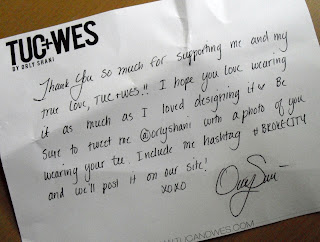 TUC+WES
BY ORLY SHANI
Thank you so much for supporting me and my
true love, TUC+WES!! I hope you love wearing
it as much as I loved designing it Be
sure to tweet me @orlyshani with a photo of you
wearing your tee. Include me hashtag #BROKECITY
and we'll post it on our site!
XOXO
TUCANDWES.COM